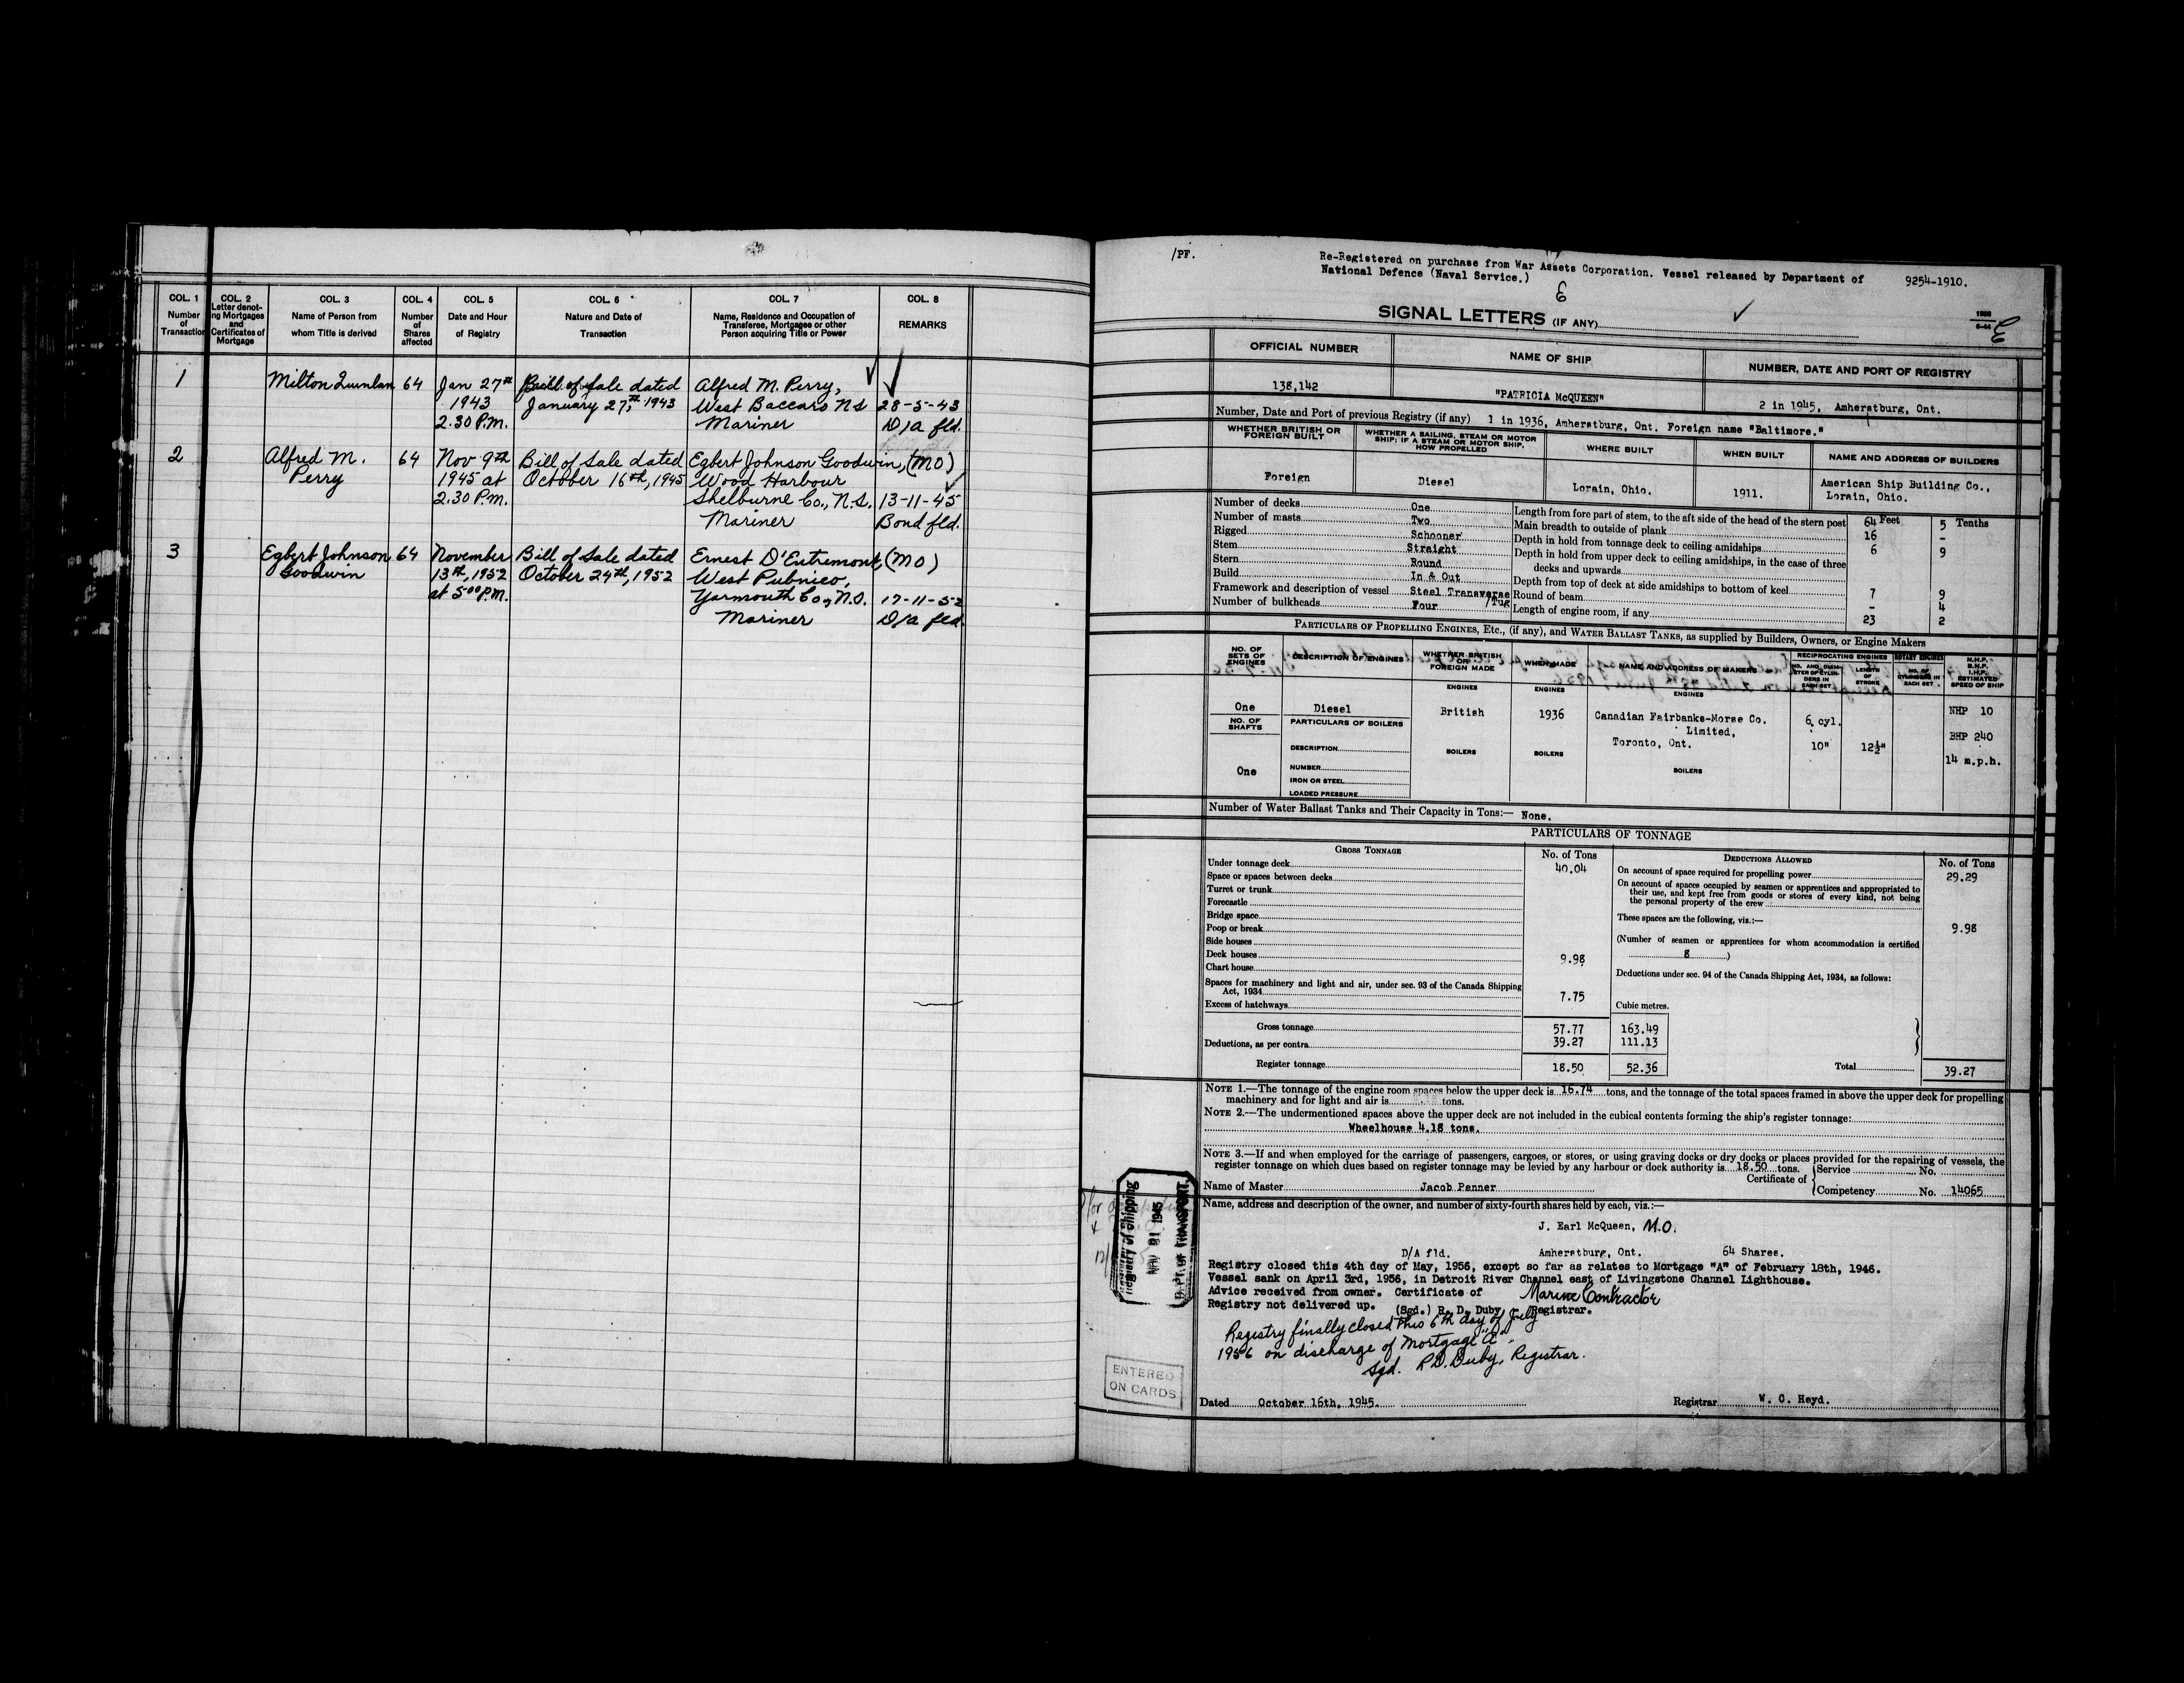 COL. 1
Number
of
Transaction
COL. 2
Letter denot-
ing Mortgages
and
Certificates of
Mortgage
COL. 3
Name of Person from
whom Title is derived
COL. 4
Number
of
Shares
affected
COL. 5
Date and Hour
of Registry
COL. 6
Nature and Date of
Transaction
COL. 7
Name, Residence and Occupation of
Transferee, Mortgagee or other
Person acquiring Title or Power
COL. 8
REMARKS
1 Milton Quinlan 64 Jan 27th Bill of Sale dated Alfred M. Perry,
1943 January 27th, 1943 West Baccaro N.S 28-5-43
2.30 P.M. Mariner D/a fld.
2 Alfred M. 64 Nov 9th Bill of Sale dated Egbert Johnson Goodwin, (MO)
Perry 1945 at October 16th, 1945 Wood Harbour
2.30 P.M. Shelburne Co., N.S. 13-11-45
Mariner Bond fld.
3 Egbert Johnson 64 November Bill of Sale dated Ernest D'Entremont, (MO)
Goodwin 13th, 1952 October 24th, 1952 West Pubnico,
at 5.00 P.M. Yarmouth Co., N.S. 17-11-52
Mariner D/a fld.
/PF.
Re-Registered on purchase from War Assets Corporation. Vessel released by Department of
National Defence (Naval Service.)
9254-1910.
SIGNAL LETTERS (IF ANY)
OFFICIAL NUMBER NAME OF SHIP NUMBER, DATE AND PORT OF REGISTRY
138,142 "PATRICIA McQUEEN" 2 in 1945, Amherstburg, Ont.
Number, Date and Port of previous Registry (if any) 1 in 1936, Amherstburg, Ont. Foreign name "Baltimore."
WHETHER BRITISH OR
FOREIGN BUILT
WHETHER A SAILING, STEAM OR MOTOR
SHIP; IF A STEAM OR MOTOR SHIP,
HOW PROPELLED
WHERE BUILT
WHEN BUILT
NAME AND ADDRESS OF BUILDERS
Foreign Diesel Lorain, Ohio. 1911. American Ship Building Co.,
Lorain, Ohio.
Number of decks One
Number of masts Two
Rigged Schooner
Stem Straight
Stern Round
Build In & Out
Framework and description of vessel Steel Transverse
/Tug
Number of bulkheads Four
Feet Tenths
Length from fore part of stem, to the aft side of the head of the stern post 64 5
Main breadth to outside of plank 16 -
Depth in hold from tonnage deck to ceiling amidships 6 9
Depth in hold from upper deck to ceiling amidships, in the case of three
decks and upwards
Depth from top of deck at side amidships to bottom of keel 7 9
Round of beam - 4
Length of engine room, if any 23 2
PARTICULARS OF PROPELLING ENGINES, ETC., (if any), and WATER BALLAST TANKS, as supplied by Builders, Owners, or Engine Makers
NO. OF
SETS OF
ENGINES
DESCRIPTION OF ENGINES
WHETHER BRITISH
OR
FOREIGN MADE
WHEN MADE
NAME AND ADDRESS OF MAKERS
RECIPROCATING ENGINES
NO. AND DIAM-
ETER OF CYLIN-
DERS IN
EACH SET
LENGTH
OF
STROKE
ROTARY ENGINES
NO. OF
CYLINDERS IN
EACH SET
N.H.P.
B.H.P.
I.H.P.
ESTIMATED
SPEED OF SHIP
ENGINES ENGINES ENGINES
One Diesel British 1936 Canadian Fairbanks-Morse Co. 6 cyl. NHP 10
NO. OF
SHAFTS
PARTICULARS OF BOILERS
Limited,
Toronto, Ont. 10" 12½" BHP 240
DESCRIPTION BOILERS BOILERS BOILERS 14 m.p.h.
One NUMBER
IRON OR STEEL
LOADED PRESSURE
Number of Water Ballast Tanks and Their Capacity in Tons:— None.
PARTICULARS OF TONNAGE
GROSS TONNAGE No. of Tons
Under tonnage deck 40.04
Space or spaces between decks
Turret or trunk
Forecastle
Bridge space
Poop or break
Side houses
Deck houses 9.98
Chart house
Spaces for machinery and light and air, under sec. 93 of the Canada Shipping
Act, 1934 7.75
Excess of hatchways
Cubic metres.
Gross tonnage 57.77 163.49
Deductions, as per contra 39.27 111.13
Register tonnage 18.50 52.36
DEDUCTIONS ALLOWED No. of Tons
On account of space required for propelling power 29.29
On account of spaces occupied by seamen or apprentices and appropriated to
their use, and kept free from goods or stores of every kind, not being
the personal property of the crew
These spaces are the following, viz.:— 9.98
(Number of seamen or apprentices for whom accommodation is certified
8 )
Deductions under sec. 94 of the Canada Shipping Act, 1934, as follows:
Total 39.27
NOTE 1.—The tonnage of the engine room spaces below the upper deck is 16.74 tons, and the tonnage of the total spaces framed in above the upper deck for propelling
machinery and for light and air is tons.
NOTE 2.—The undermentioned spaces above the upper deck are not included in the cubical contents forming the ship's register tonnage:
Wheelhouse 4.18 tons.
NOTE 3.—If and when employed for the carriage of passengers, cargoes, or stores, or using graving docks or dry docks or places provided for the repairing of vessels, the
register tonnage on which dues based on register tonnage may be levied by any harbour or dock authority is 18.50 tons.
Certificate of Service No.
Competency No. 14065
Name of Master Jacob Penner
Name, address and description of the owner, and number of sixty-fourth shares held by each, viz.:—
J. Earl McQueen, M.O.
D/A fld. Amherstburg, Ont. 64 Shares.
Registry closed this 4th day of May, 1956, except so far as relates to Mortgage "A" of February 18th, 1946.
Vessel sank on April 3rd, 1956, in Detroit River Channel east of Livingstone Channel Lighthouse.
Advice received from owner. Certificate of Marine Contractor
Registry not delivered up. (Sgd.) R. D. Duby - Registrar.
Registry finally closed this 6th day of July
1956 on discharge of Mortgage "A".
Sgd. R.D. Duby, Registrar.
Dated October 16th, 1945. Registrar W. C. Heyd.
Registry of Shipping
NOV 21 1945
DEPT. OF TRANSPORT.
ENTERED
ON CARDS